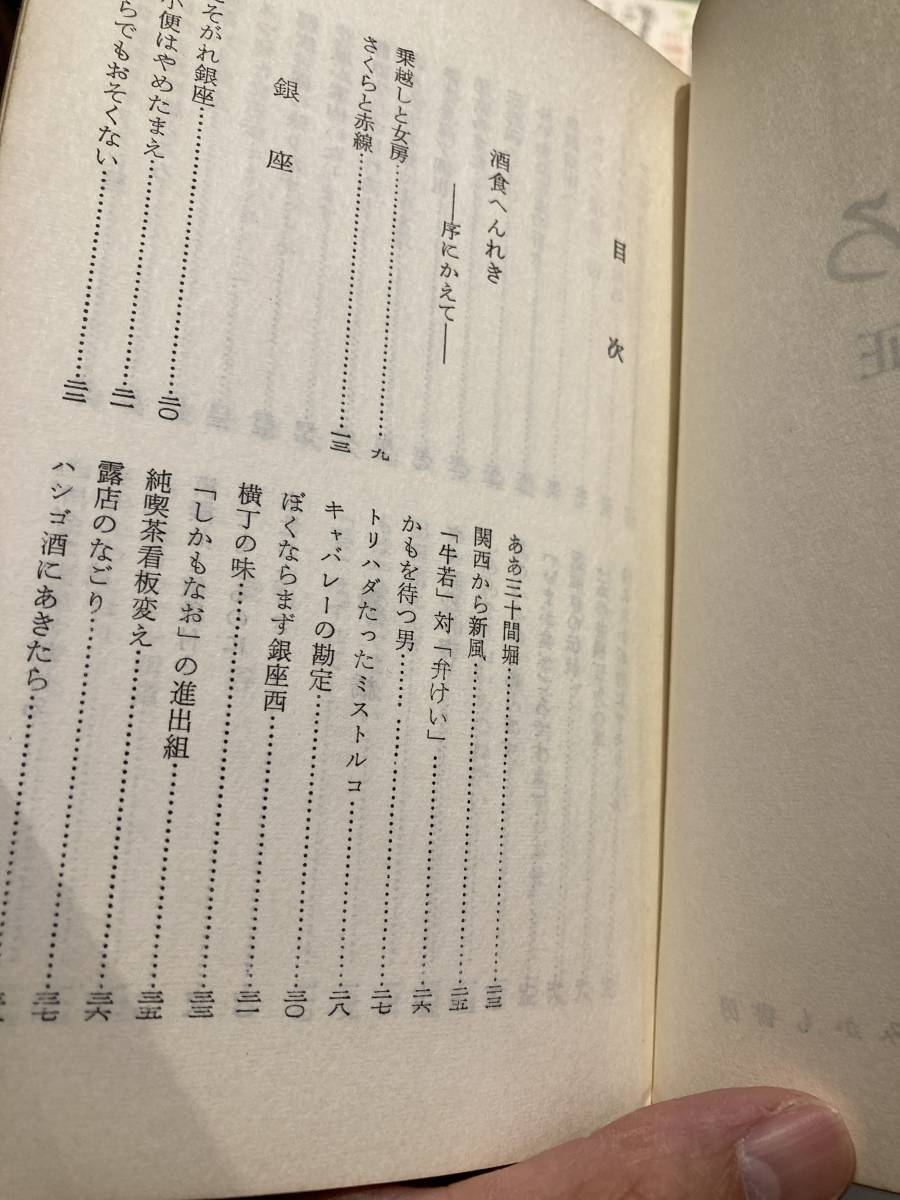 目次
酒食へんれき
――序にかえて――
乗越しと女房……九
さくらと赤線……一三
銀座
そがれ銀座……二〇
小便はやめたまえ……二一
らでもおそくない……二二
ああ三十間堀……二三
関西から新風……二五
「牛若」対「弁けい」……二六
かもを待つ男……二七
トリハダたったミストルコ……二八
キャバレーの勘定……三〇
ぼくならまず銀座西……三一
横丁の味……三三
「しかもなお」の進出組……三五
純喫茶看板変え……三六
露店のなごり……三七
ハシゴ酒にあきたら